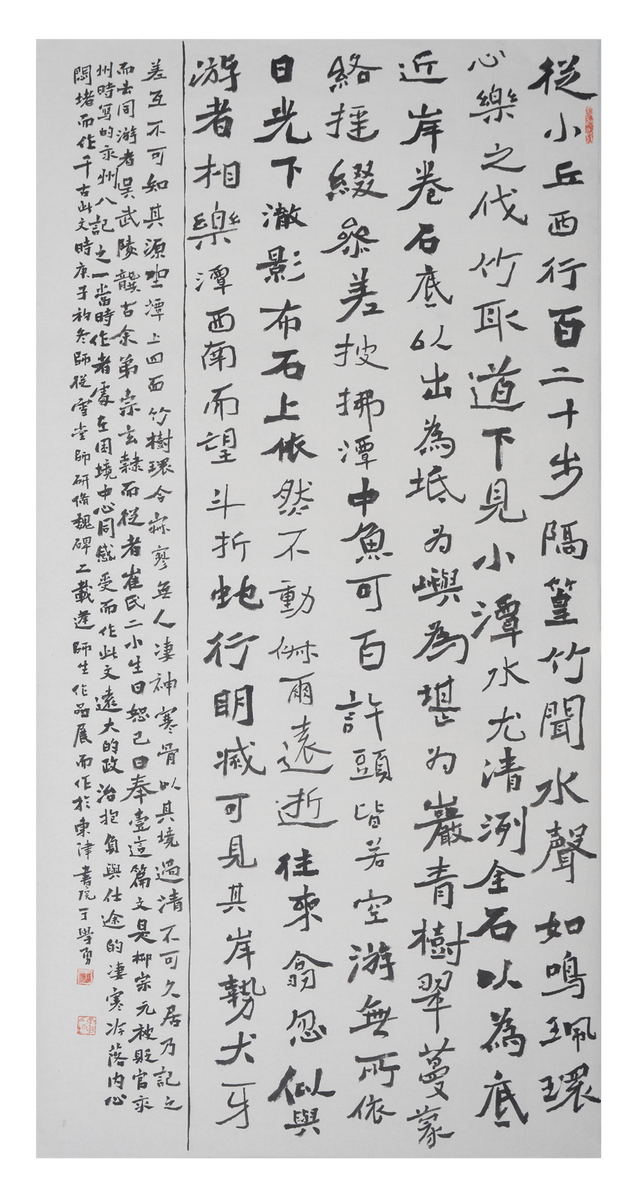 從小丘西行百二十步隔篁竹聞水聲如鳴珮環
心樂之伐竹取道下見小潭水尤清洌全石以為底
近岸卷石底以出為坻為嶼為堪為巖青樹翠蔓蒙
絡搖綴參差披拂潭中魚可百許頭皆若空游無所依
日光下澈影布石上依然不動俶爾遠逝往來翕忽似與
游者相樂潭西南而望斗折蛇行明滅可見其岸勢犬牙
差互不可知其源坐潭上四面竹樹環合寂寥無人凄神寒骨以其境過清不可久居乃記之
而去同游者吳武陵龔古余弟宗玄隸而從者崔氏二小生曰恕己曰奉壹這篇文是柳宗元被貶官永
州時寫的永州八記之一當時作者處在困境中心同感受而作此文遠大的政治抱負與仕途的凄寒冷落內心
悶堵而作千古此文時庚子初冬師從雲堂師研脩魏碑二載進師生作品展而作於東津書院丁學勇